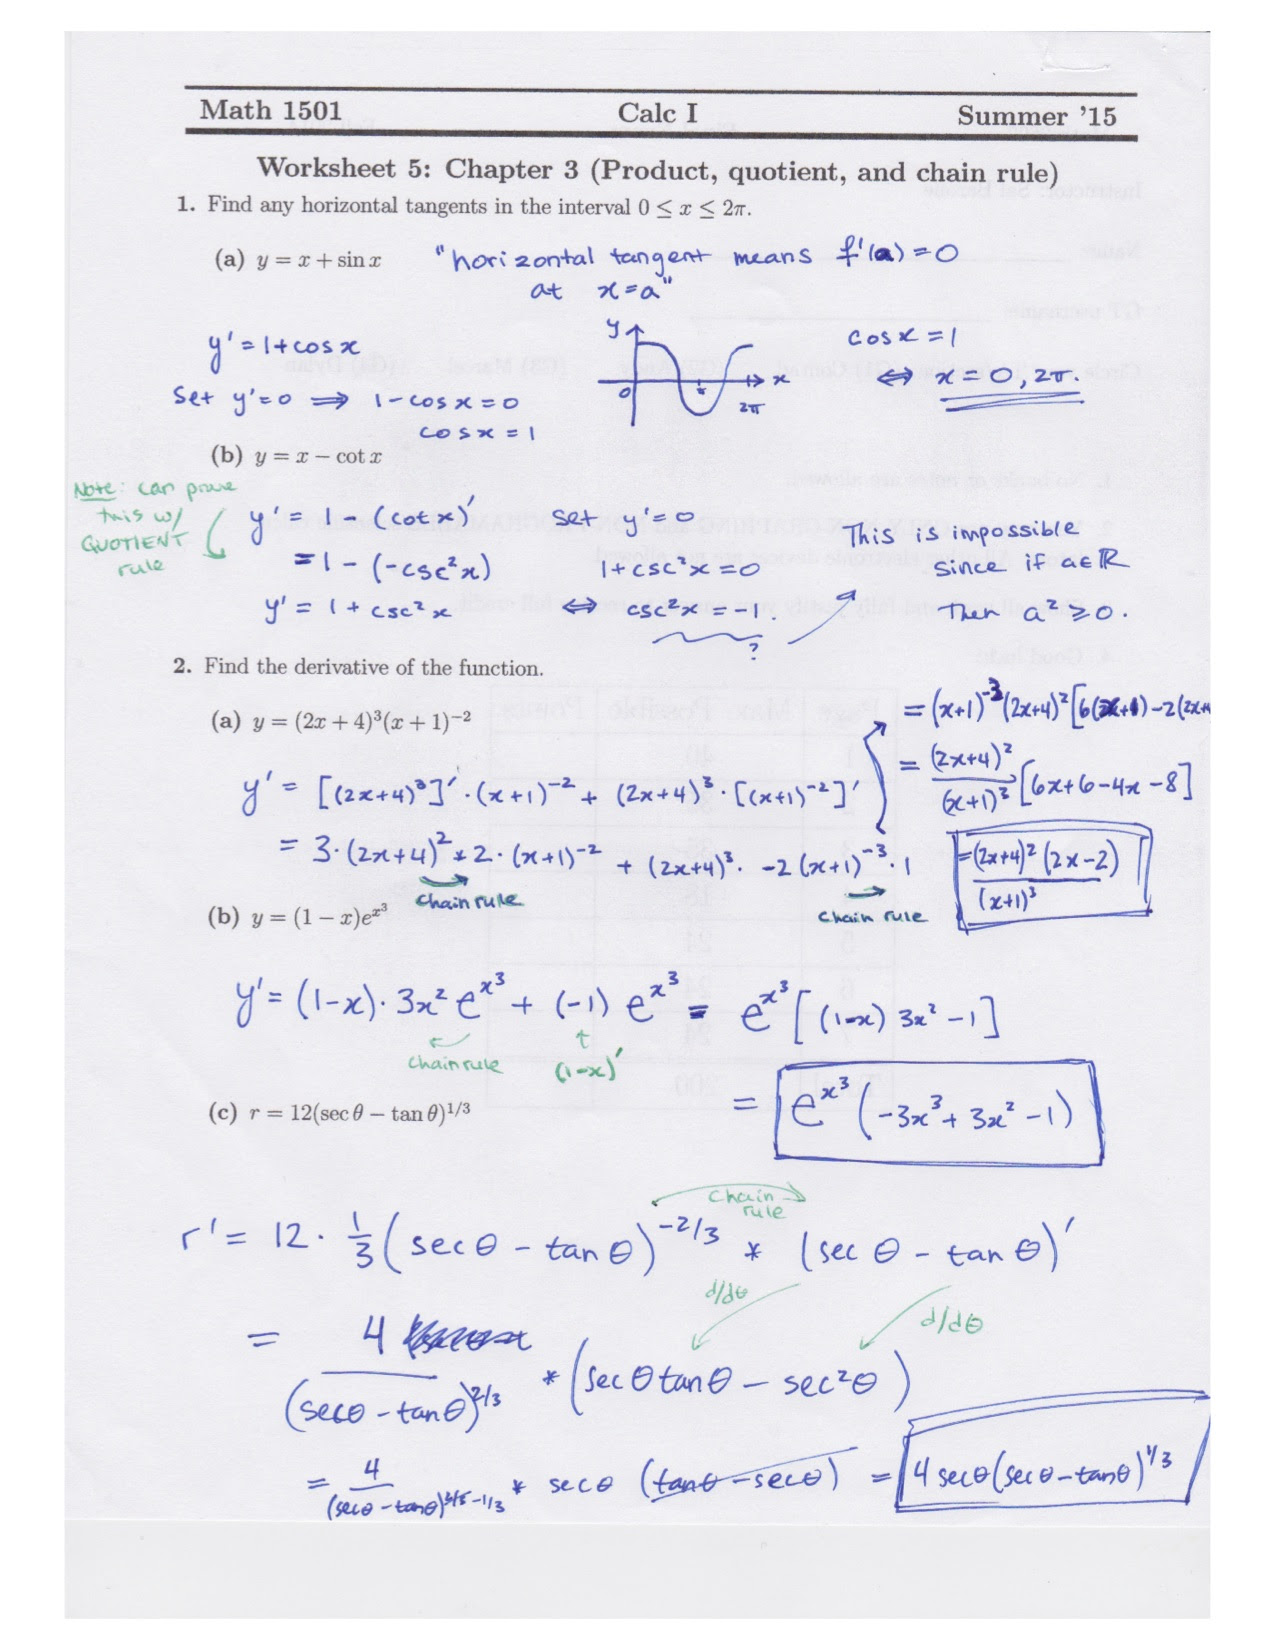 Math 1501 Calc I Summer '15
Worksheet 5: Chapter 3 (Product, quotient, and chain rule)
1. Find any horizontal tangents in the interval 0 ≤ x ≤ 2π.
(a) y = x + sin x
"horizontal tangent means f'(a) = 0
at x = a"
y' = 1 + cos x
Set y' = 0 ⟹ 1 - cos x = 0
cos x = 1
y
x
0
π
2π
cos x = 1
⟺ x = 0, 2π.
(b) y = x − cot x
Note: can prove
this w/
QUOTIENT
rule
y' = 1 - (cot x)'
= 1 - (-csc²x)
y' = 1 + csc²x
set y' = 0
1 + csc²x = 0
⟺ csc²x = -1.
?
This is impossible
since if a∈ℝ
Then a² ≥ 0.
2. Find the derivative of the function.
(a) y = (2x + 4)³(x + 1)⁻²
y' = [(2x+4)³]' · (x+1)⁻² + (2x+4)³ · [(x+1)⁻²]'
= 3·(2x+4)² * 2·(x+1)⁻² + (2x+4)³ · -2(x+1)⁻³ · 1
chain rule
chain rule
= (x+1)⁻³ (2x+4)² [6(x+1) - 2(2x+4
= (2x+4)²/(x+1)³ [6x+6-4x-8]
= (2x+4)² (2x-2)/(x+1)³
(b) y = (1 − x)e^{x³}
y' = (1-x)· 3x² e^{x³} + (-1) e^{x³} = e^{x³} [(1-x) 3x² - 1]
chain rule
(1-x)'
= e^{x³} (-3x³ + 3x² - 1)
(c) r = 12(sec θ − tan θ)^{1/3}
chain
rule
r' = 12 · 1/3 (sec θ - tan θ)^{-2/3} * (sec θ - tan θ)'
d/dθ
d/dθ
= 4/(secθ - tanθ)^{2/3} * (sec θ tan θ - sec²θ)
= 4/(secθ - tanθ)^{2/3 - 1/3} * sec θ (tanθ - secθ) = 4 secθ (secθ - tanθ)^{1/3}